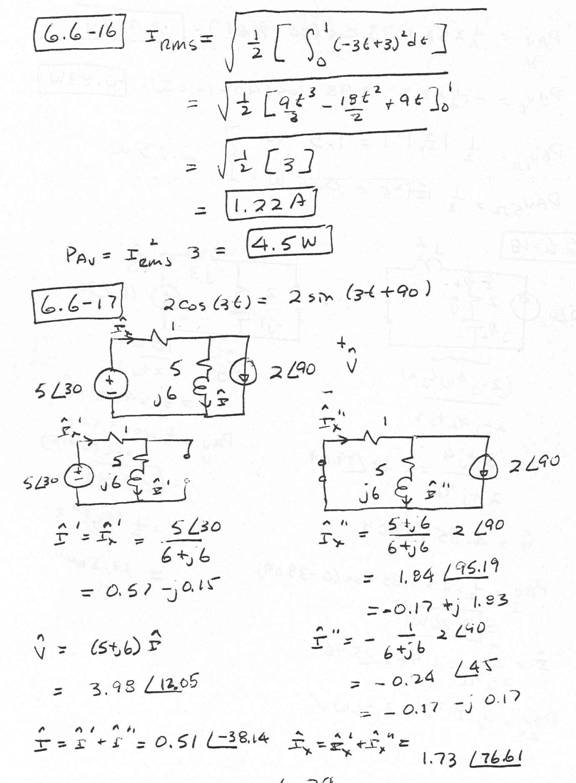 6.6-16 I_Rms = √(1/2 [∫₀¹ (-3t+3)² dt])
= √(1/2 [9t³/3 - 18t²/2 + 9t]₀¹)
= √(1/2 [3])
= 1.22 A
P_AV = I²_Rms 3 = 4.5 W
6.6-17 2cos(3t) = 2 sin (3t+90)
Î_x 1
5∠30 + - 5 j6 Î 2∠90 + V̂ -
Î_x' 1
5∠30 + - 5 j6 Î'
Î_x'' 1
5 j6 Î'' 2∠90
Î' = Î_x' = 5∠30 / 6+j6
= 0.57 - j0.15
Î_x'' = 5+j6 / 6+j6 2∠90
= 1.84 ∠95.19
= -0.17 + j 1.83
V̂ = (5+j6) Î
= 3.98 ∠12.05
Î'' = - 1 / 6+j6 2∠90
= -0.24 ∠45
= -0.17 - j 0.17
Î = Î' + Î'' = 0.51 ∠-38.14
Î_x = Î_x' + Î_x'' =
1.73 ∠76.61